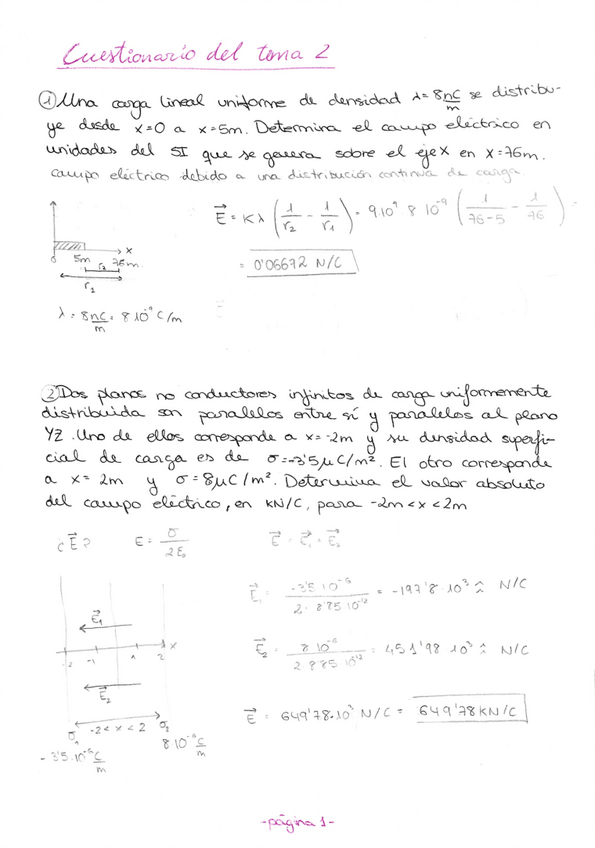 Cuestionario del tema 2
① Una carga lineal uniforme de densidad λ= 8 nC/m se distribu-
ye desde x=0 a x=5m. Determina el campo eléctrico en
unidades del SI que se genera sobre el eje X en x=76m.
campo eléctrico debido a una distribución continua de carga
E⃗ = Kλ (1/r₂ - 1/r₁) = 9·10⁹ 8 10⁻⁹ (1/76-5 - 1/76) =
= 0'06672 N/C
x
0 5m r₂ 76m
r₁
λ = 8 nC/m = 8·10⁻⁹ C/m
② Dos planos no conductores infinitos de carga uniformemente
distribuida son paralelos entre sí y paralelos al plano
YZ. Uno de ellos corresponde a x=-2m y su densidad superfi-
cial de carga es de σ=-3'5 μC/m². El otro corresponde
a x= 2m y σ= 8 μC/m². Determina el valor absoluto
del campo eléctrico, en kN/C, para -2m<x<2m
¿E⃗? E = σ/2ε₀ E⃗ = E⃗₁ + E⃗₂
E⃗₁ = -3'5 10⁻⁶ / 2 · 8'85 10⁻¹² = -197'8·10³ N/C
E⃗₁
-2 -1 1 2 x
E⃗₂ = 8 10⁻⁶ / 2 8'85 10⁻¹² = 451'98 10³ N/C
E⃗₂
E⃗ = 649'78·10³ N/C = 649'78 KN/C
σ₁ -2 < x < 2 σ₂
- 3'5·10⁻⁶ C/m 8·10⁻⁶ C/m
-página 1-